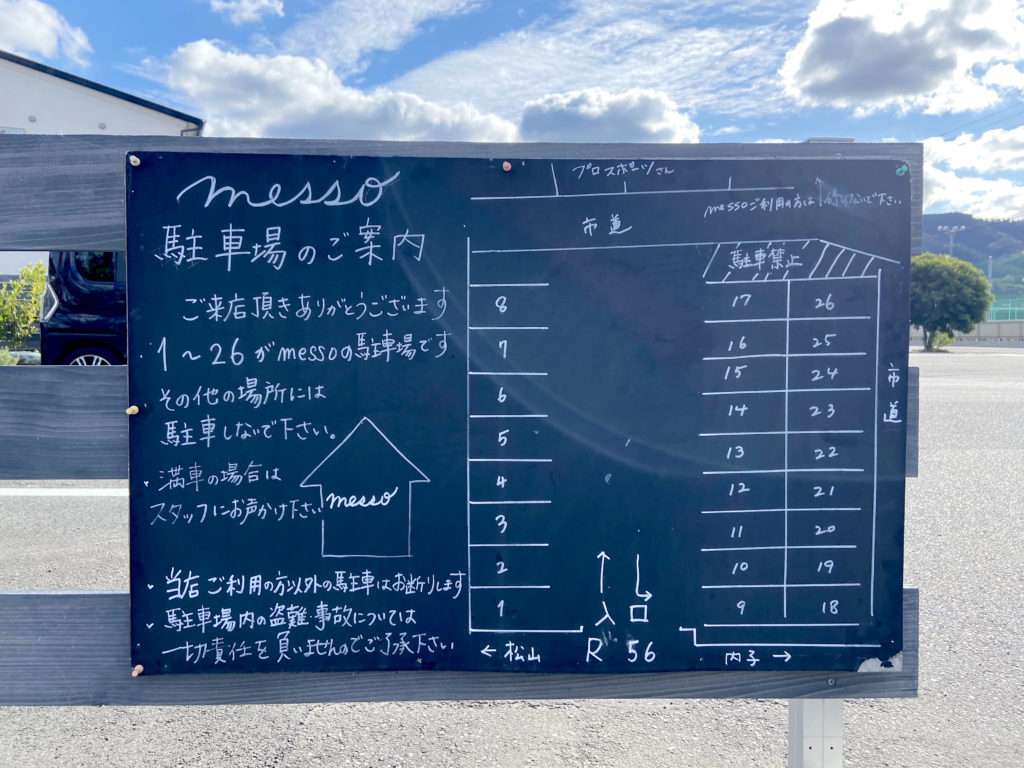 messo
駐車場のご案内
ご来店頂きありがとうございます
・1～26がmessoの駐車場です
・その他の場所には
駐車しないで下さい。
・満車の場合は
スタッフにお声かけ下さい
messo
・当店ご利用の方以外の駐車はお断りします
・駐車場内の盗難・事故については
一切責任を負いませんのでご了承下さい
プロスポーツさん
messoご利用の方は
下さい
市道
駐車禁止
8
7
6
5
4
3
2
1
17 26
16 25
15 24
14 23
13 22
12 21
11 20
10 19
9 18
市道
↑
入
口
← 松山
R 56
内子 →